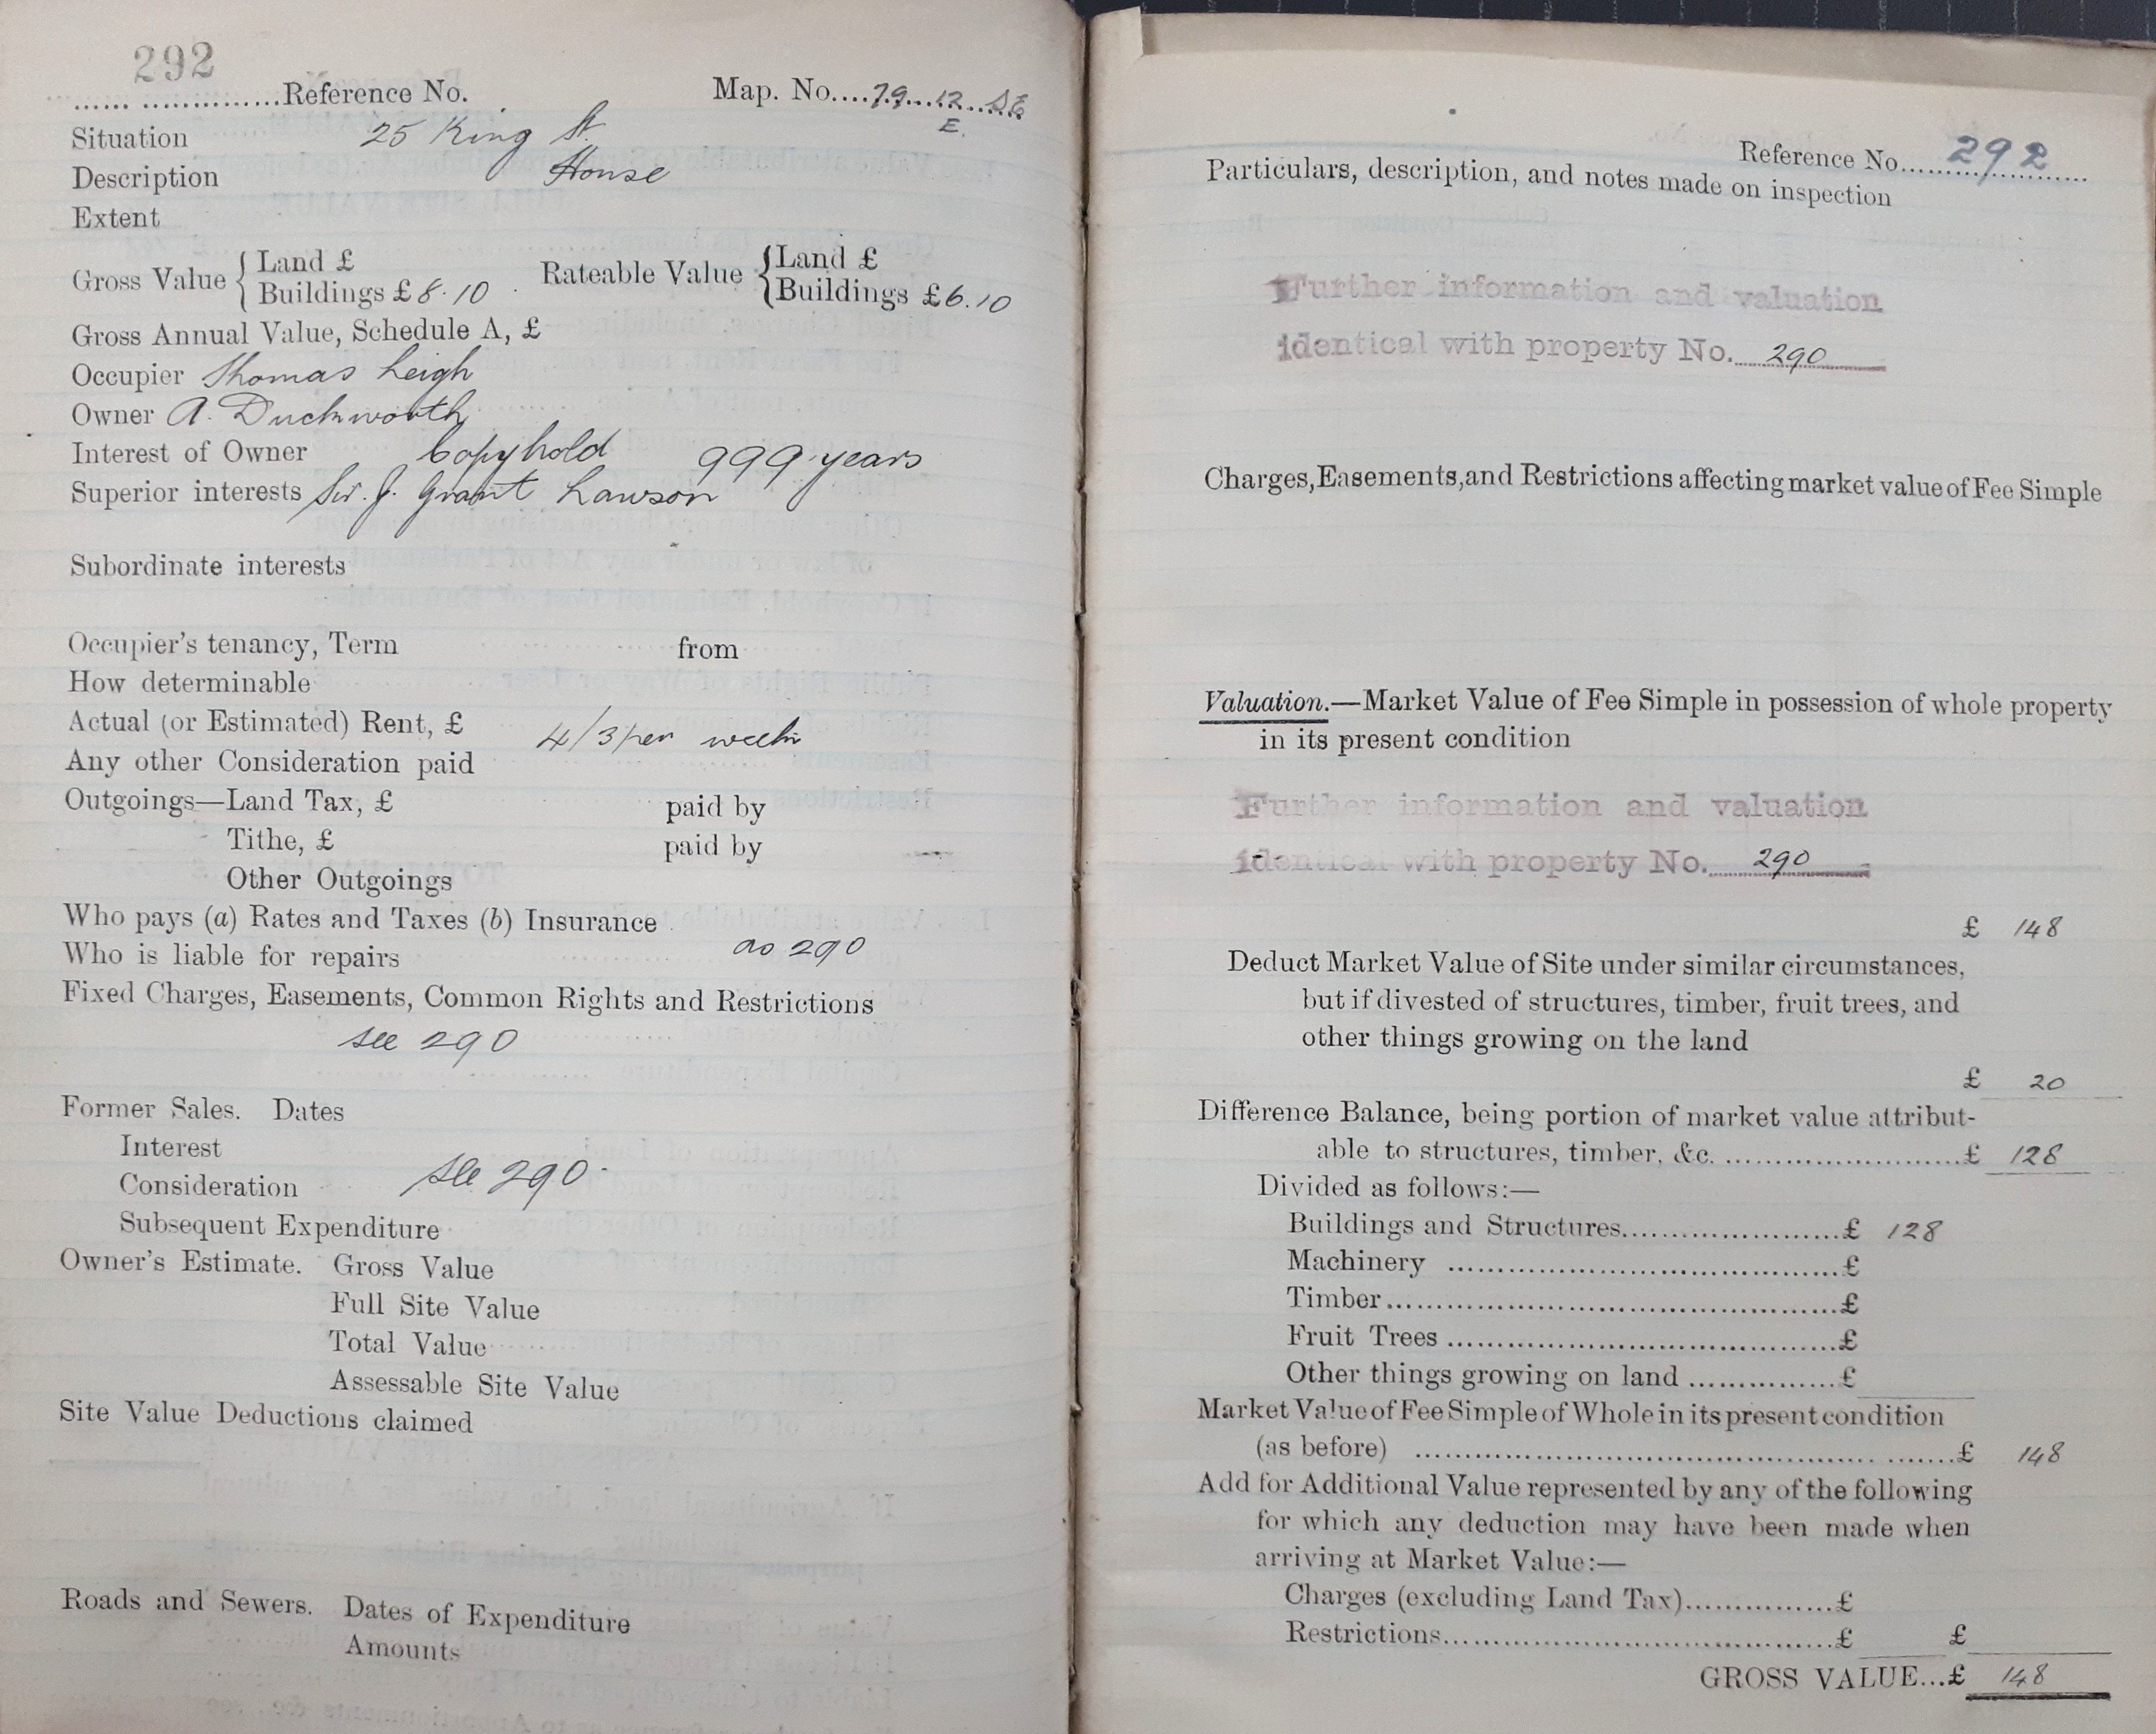 292
Reference No. Map. No. 79 12 SE
E.
Situation 25 King St.
Description House
Extent
Gross Value { Land £ Rateable Value { Land £
Buildings £ 8.10 Buildings £ 6.10
Gross Annual Value, Schedule A, £
Occupier Thomas Leigh
Owner A. Duckworth
Interest of Owner Copyhold 999 years
Superior interests Sir. J. Grant Lawson
Subordinate interests
Occupier's tenancy, Term from
How determinable
Actual (or Estimated) Rent, £ 4/3 per week
Any other Consideration paid
Outgoings—Land Tax, £ paid by
Tithe, £ paid by
Other Outgoings
Who pays (a) Rates and Taxes (b) Insurance
Who is liable for repairs as 290
Fixed Charges, Easements, Common Rights and Restrictions
see 290
Former Sales. Dates
Interest
Consideration see 290
Subsequent Expenditure
Owner's Estimate. Gross Value
Full Site Value
Total Value
Assessable Site Value
Site Value Deductions claimed
Roads and Sewers. Dates of Expenditure
Amounts
Reference No. 292
Particulars, description, and notes made on inspection
Further information and valuation
identical with property No. 290
Charges, Easements, and Restrictions affecting market value of Fee Simple
Valuation.—Market Value of Fee Simple in possession of whole property
in its present condition
Further information and valuation
identical with property No. 290
£ 148
Deduct Market Value of Site under similar circumstances,
but if divested of structures, timber, fruit trees, and
other things growing on the land
£ 20
Difference Balance, being portion of market value attribut-
able to structures, timber, &c. £ 128
Divided as follows:—
Buildings and Structures £ 128
Machinery £
Timber £
Fruit Trees £
Other things growing on land £
Market Value of Fee Simple of Whole in its present condition
(as before) £ 148
Add for Additional Value represented by any of the following
for which any deduction may have been made when
arriving at Market Value:—
Charges (excluding Land Tax) £
Restrictions £ £
GROSS VALUE...£ 148